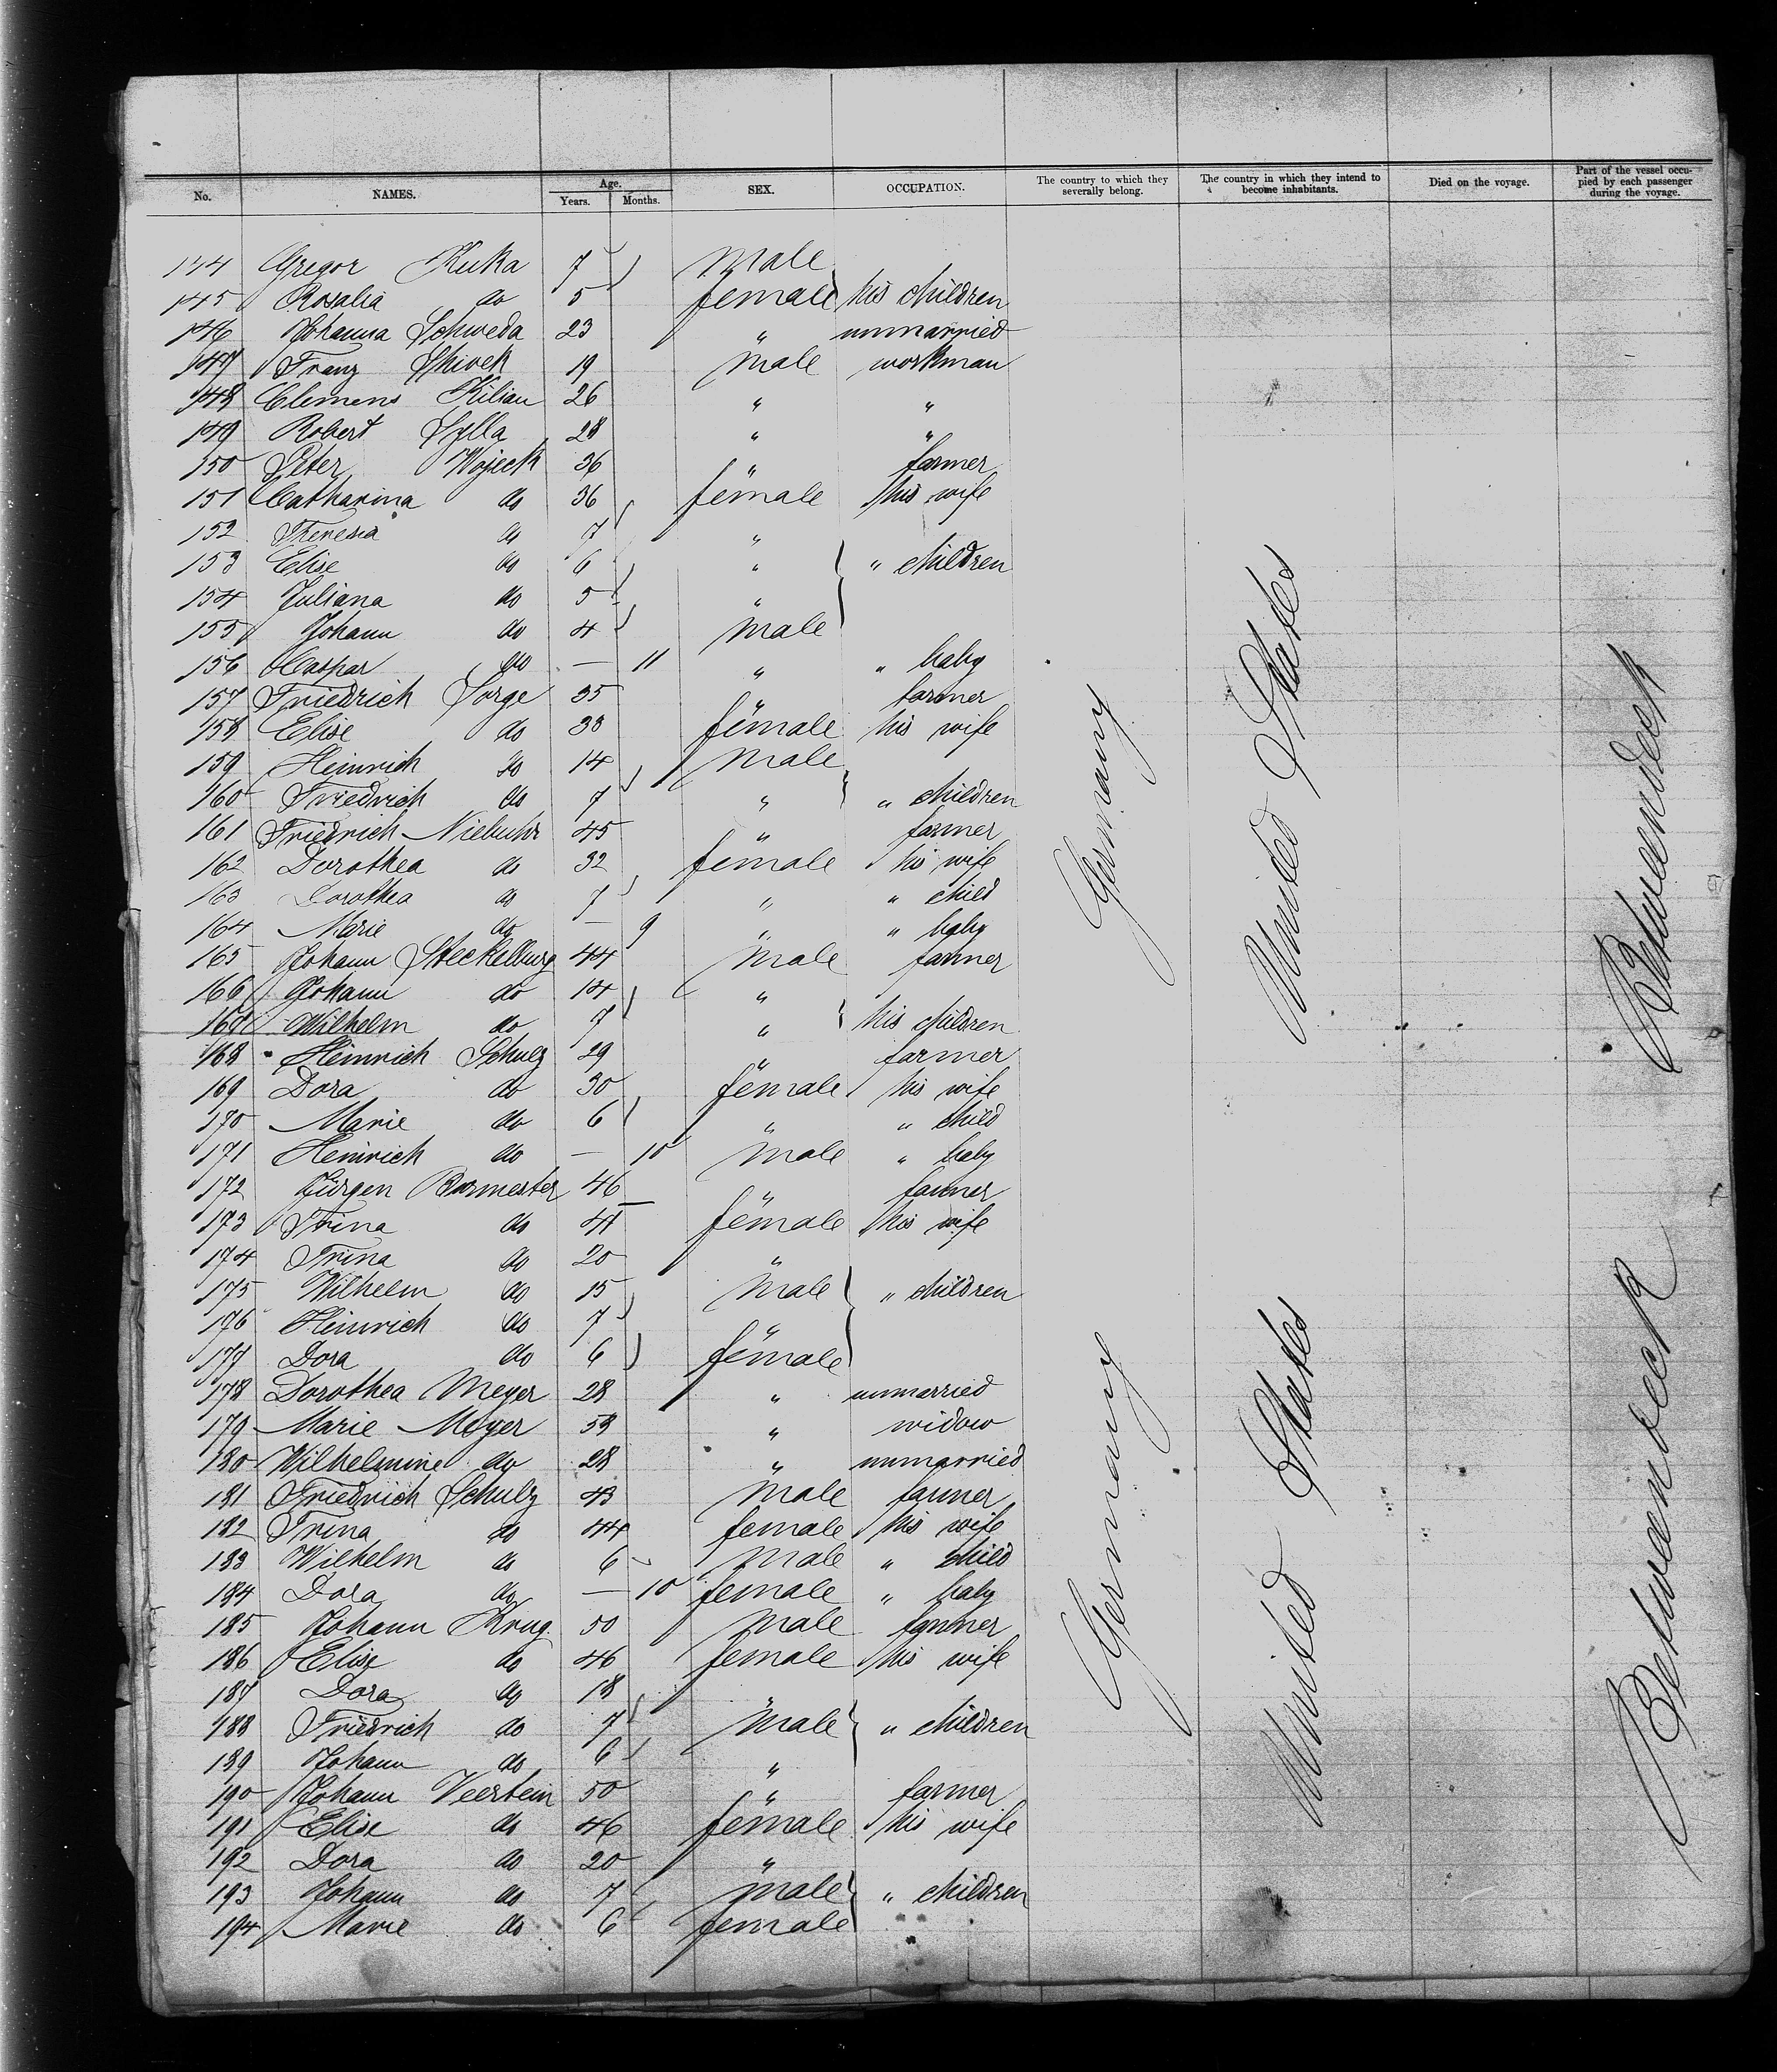 No. NAMES. Age. Years. Months. SEX. OCCUPATION. The country to which they severally belong. The country in which they intend to become inhabitants. Died on the voyage. Part of the vessel occupied by each passenger during the voyage.
144 Gregor Kuka 7 male
145 Rosalia do 5 female his children
146 Johanna Schweda 23 " unmarried
147 Franz 19 male workman
148 Clemens Kilian 26 " "
149 Robert Sylla 28 " "
150 Peter Wojeck 36 " farmer
151 Catharina do 36 female his wife
152 Theresia do 7 "
153 Elise do 6 " " children
154 Juliana do 5 "
155 Johann do 4 male
156 Caspar do — 11 " " baby
157 Friedrich Sorge 35 " farmer
158 Elise do 38 female his wife
159 Heinrich do 14 male
160 Friedrich do 7 " " children
161 Friedrich Niebuhr 45 " farmer
162 Dorothea do 32 female his wife
163 Dorothea do 7 " " child
164 Marie do — 9 " " baby
165 Johann Steckelburg 44 male farmer
166 Johann do 14 "
167 Wilhelm do 7 " his children
168 Heinrich Schulz 29 " farmer
169 Dora do 30 female his wife
170 Marie do 6 " " child
171 Heinrich do — 10 male " baby
172 Jürgen Burmester 46 " farmer
173 Trina do 41 female his wife
174 Trina do 20 "
175 Wilhelm do 15 male " children
176 Heinrich do 7 "
177 Dora do 6 female
178 Dorothea Meyer 28 " unmarried
179 Marie Meyer 58 " widow
180 Wilhelmine do 28 " unmarried
181 Friedrich Schulz 43 male farmer
182 Trina do 44 female his wife
183 Wilhelm do 6 male " child
184 Dora do — 10 female " baby
185 Johann Krug 50 male farmer
186 Elise do 46 female his wife
187 Dora do 18 "
188 Friedrich do 7 male " children
189 Johann do 6 "
190 Johann Veerstein 50 " farmer
191 Elise do 46 female his wife
192 Dora do 20 "
193 Johann do 7 male " children
194 Marie do 6 female
Germany
United States
Betweendeck
Germany
United States
Betweendeck